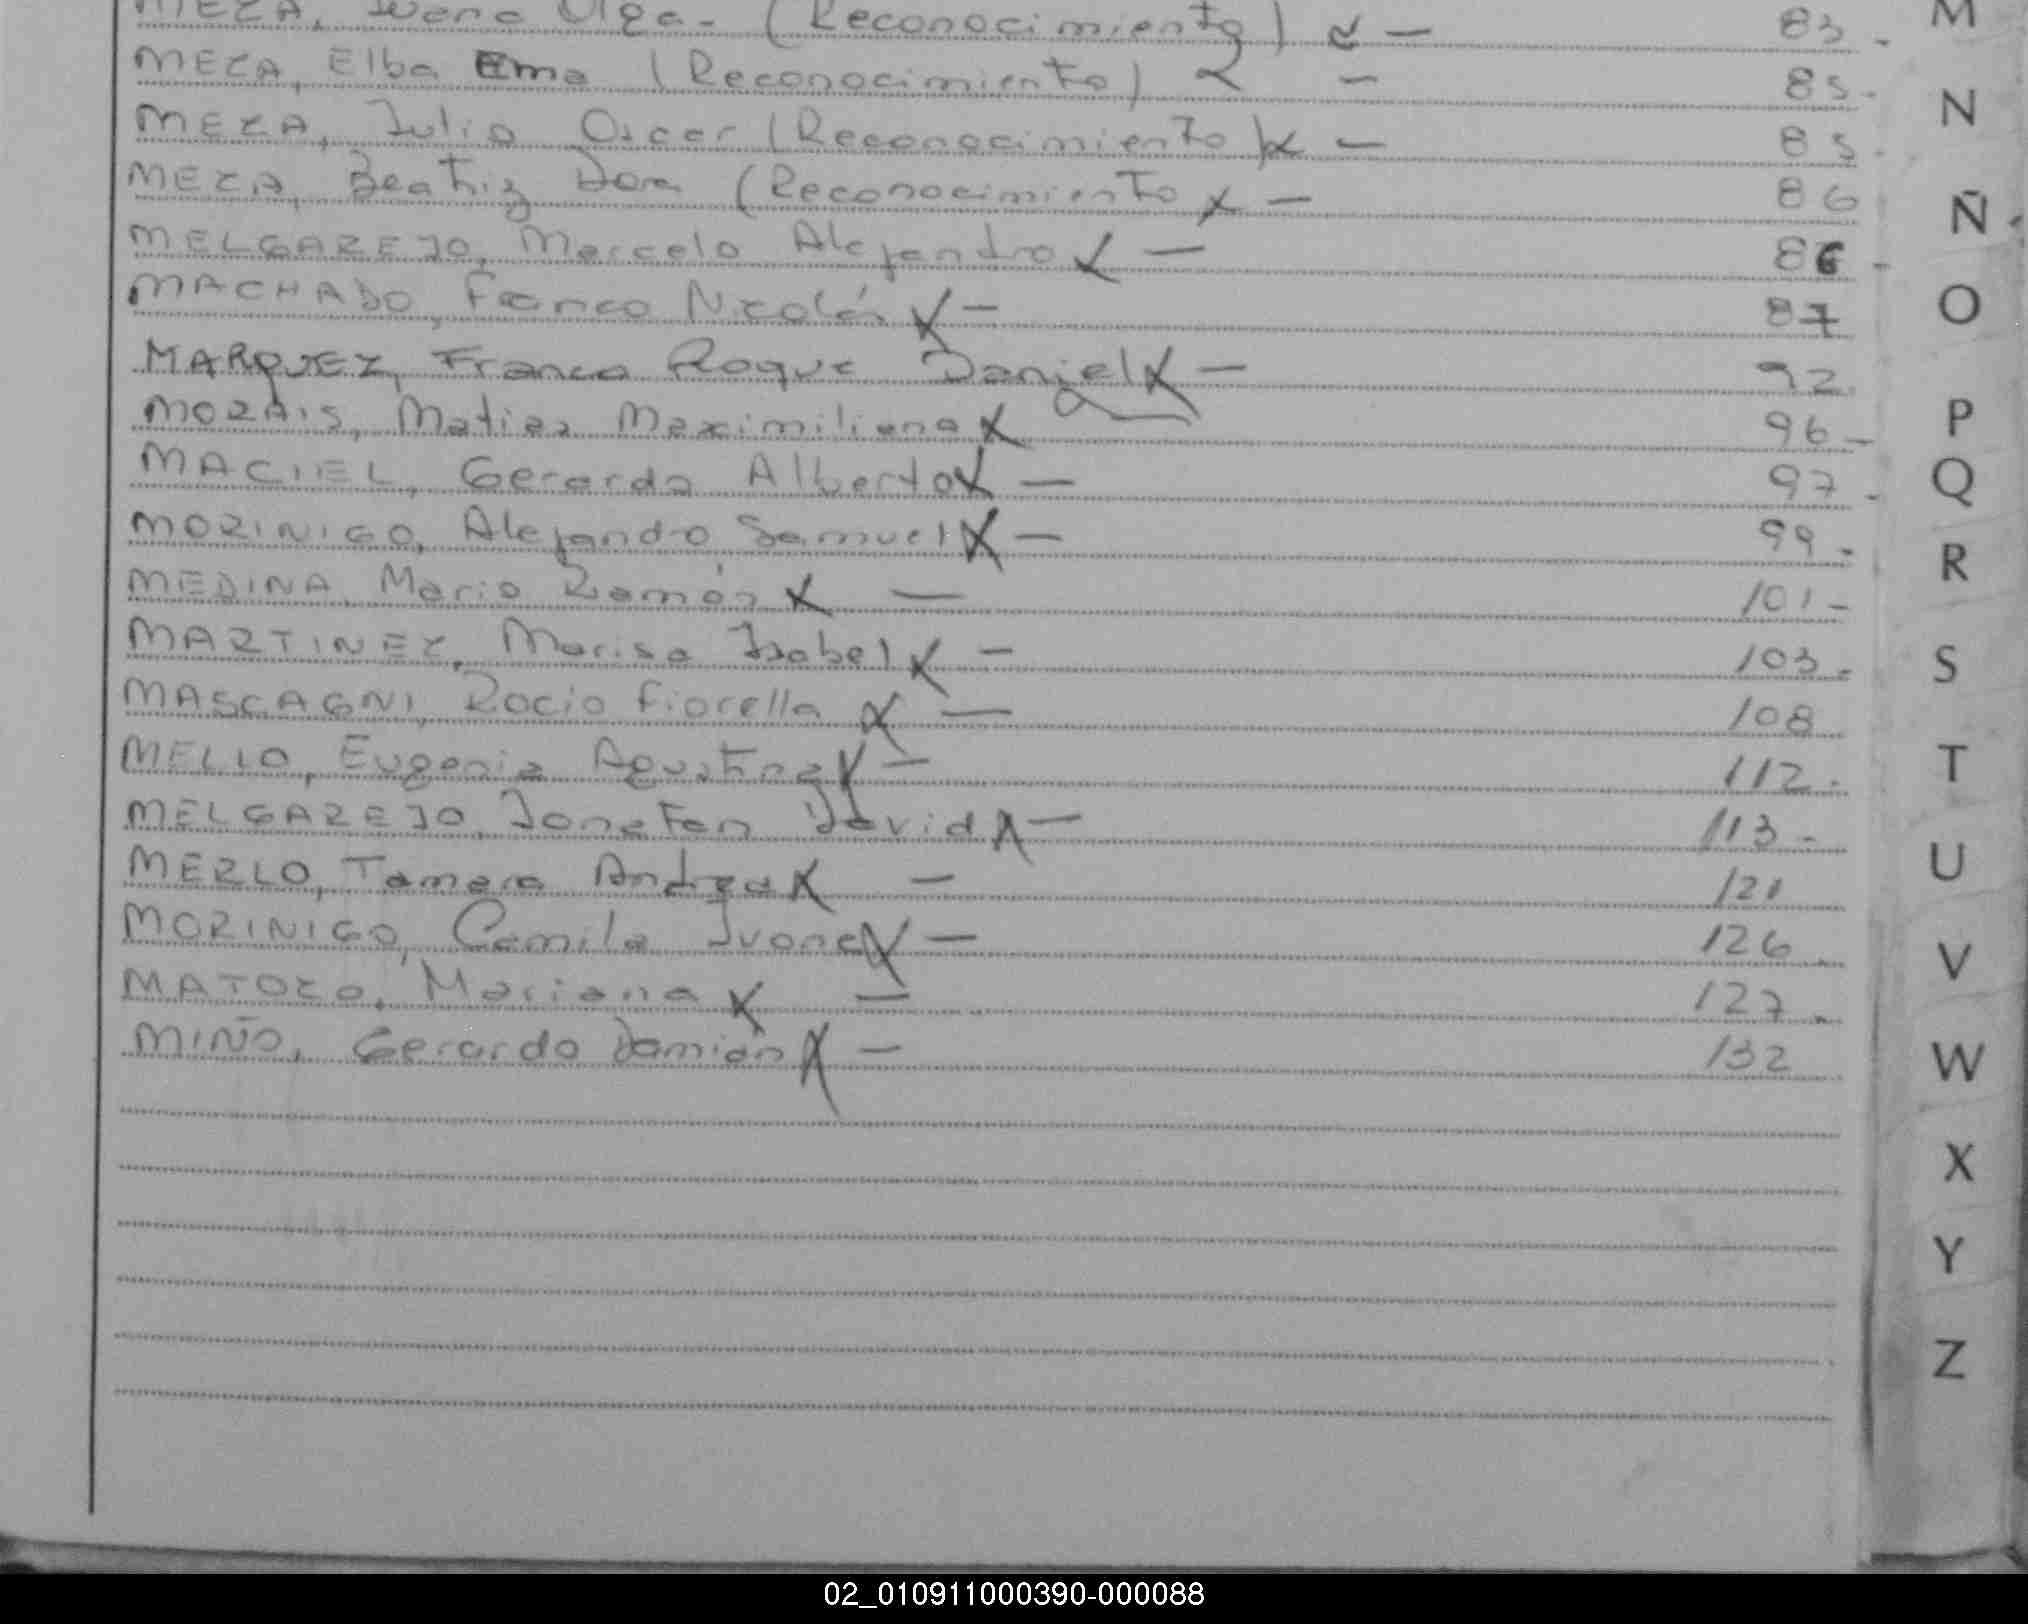 MEZA, Juana Olga. (Reconocimiento) 83
MEZA, Elba Ema (Reconocimiento) 85
MEZA, Julio Oscar (Reconocimiento) 85
MEZA, Beatriz Dora (Reconocimiento 86
MELGAREJO, Marcelo Alejandro 86
MACHADO, Franco Nicolás 87
MARQUEZ, Franco Roque Daniel 92
MORAIS, Matias Maximiliano 96
MACIEL, Gerardo Alberto 97
MORINIGO, Alejandro Samuel 99
MEDINA, Mario Ramón 101
MARTINEZ, Marisa Isabel 103
MASCAGNI, Rocio Fiorella 108
MELLO, Eugenia Agustina 112
MELGAREJO, Jonatan David 113
MERLO, Tamara Andrea 121
MORINIGO, Camila Ivone 126
MATOZO, Mariana 127
MIÑO, Gerardo Damián 132
M
N
Ñ
O
P
Q
R
S
T
U
V
W
X
Y
Z
02_010911000390-000088